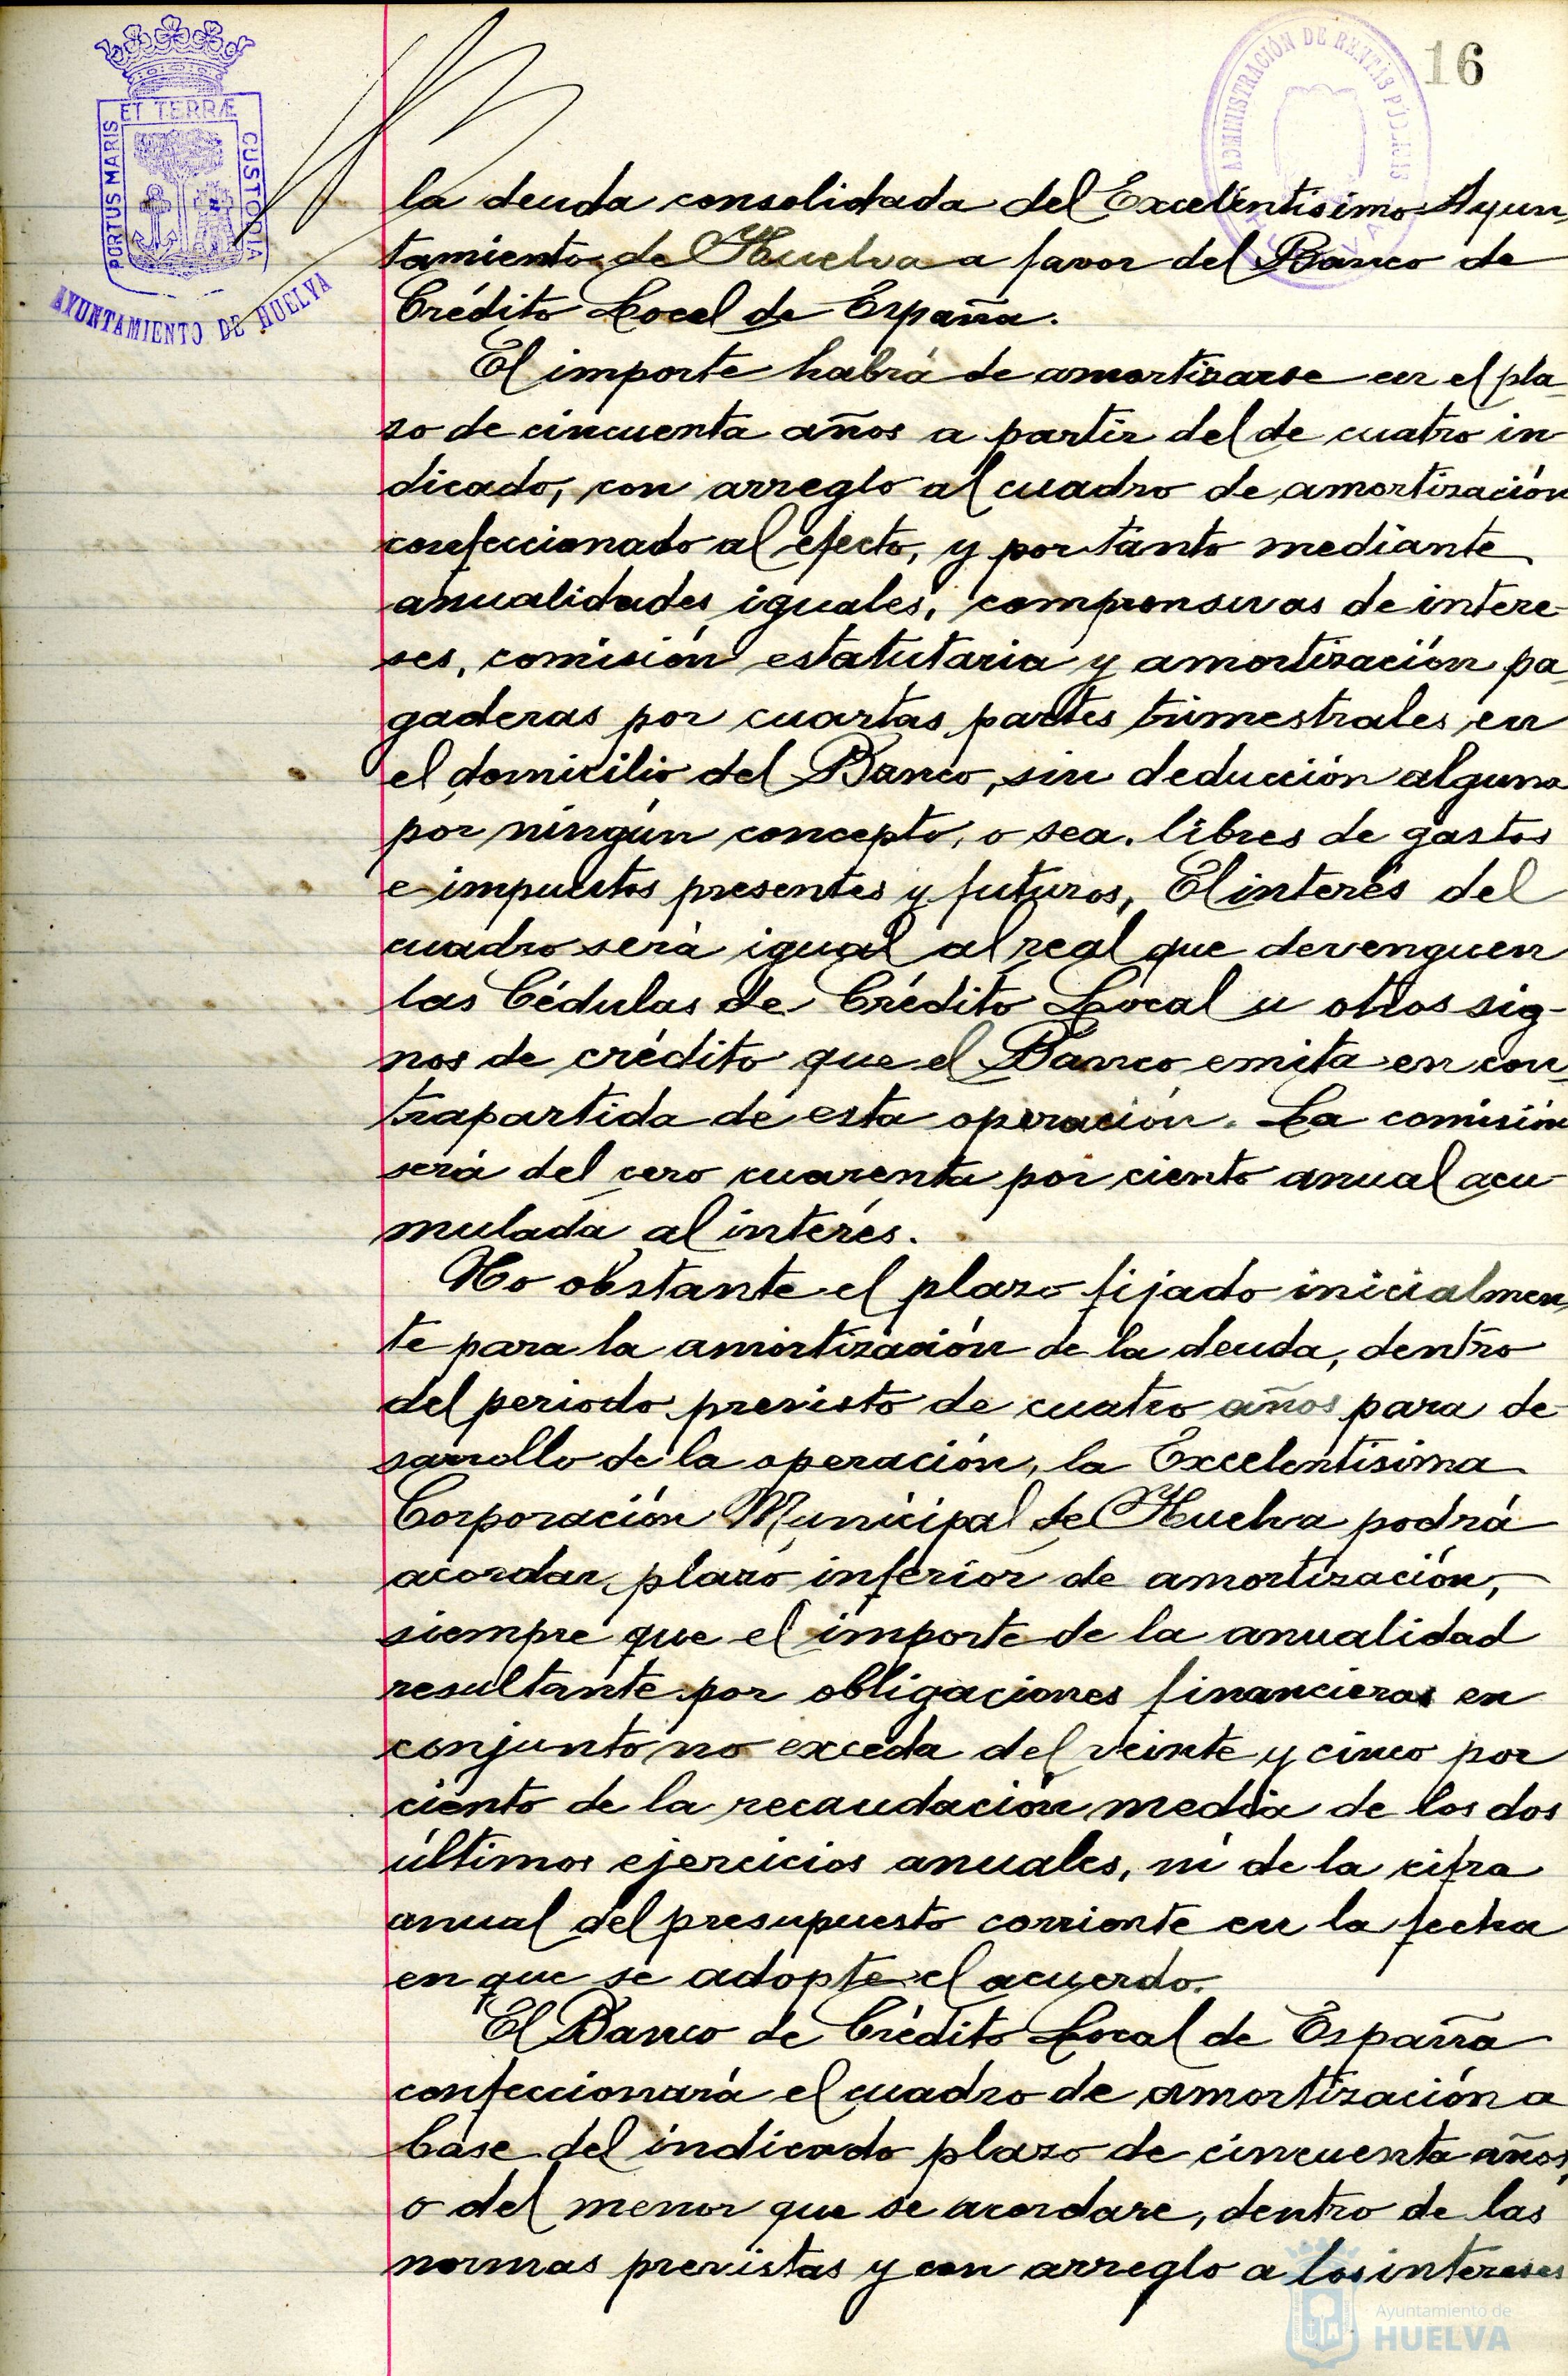 16
ADMINISTRACIÓN DE RENTAS PÚBLICAS
ET TERRÆ
PORTUS MARIS
CUSTODIA
AYUNTAMIENTO DE HUELVA
la deuda consolidada del Excelentísimo Ayun-
tamiento de Huelva a favor del Banco de
Crédito Local de España.
El importe habrá de amortizarse en el pla-
zo de cincuenta años a partir del de cuatro in-
dicado, con arreglo al cuadro de amortización
confeccionado al efecto, y por tanto mediante
anualidades iguales, comprensivas de intere-
ses, comisión estatutaria y amortización pa-
gaderas por cuartas partes trimestrales en
el domicilio del Banco, sin deducción alguna
por ningún concepto, o sea, libres de gastos
e impuestos presentes y futuros, El interés del
cuadro será igual al real que devenguen
las Cédulas de Crédito Local u otros sig-
nos de crédito que el Banco emita en con-
trapartida de esta operación. La comisión
será del cero cuarenta por ciento anual acu-
mulada al interés.
No obstante el plazo fijado inicialmen-
te para la amortización de la deuda, dentro
del periodo previsto de cuatro años para de-
sarrollo de la operación, la Excelentísima
Corporación Municipal de Huelva podrá
acordar plazo inferior de amortización,
siempre que el importe de la anualidad
resultante por obligaciones financieras en
conjunto no exceda del veinte y cinco por
ciento de la recaudación media de los dos
últimos ejercicios anuales, ni de la cifra
anual del presupuesto corriente en la fecha
en que se adopte el acuerdo.
El Banco de Crédito Local de España
confeccionará el cuadro de amortización a
base del indicado plazo de cincuenta años,
o del menor que se acordare, dentro de las
normas previstas y con arreglo a los intereses
Ayuntamiento de
HUELVA